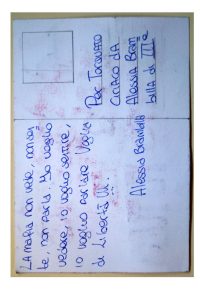 LA mafia non vede, non sen
te, non parla. Io voglio
vedere, io voglio sentire,
io voglio parlare. Voglio
di Libertà !!!
Alessia Brambilla
Per Torquato
Ciriaco da
Alessia Bram
billa di III e